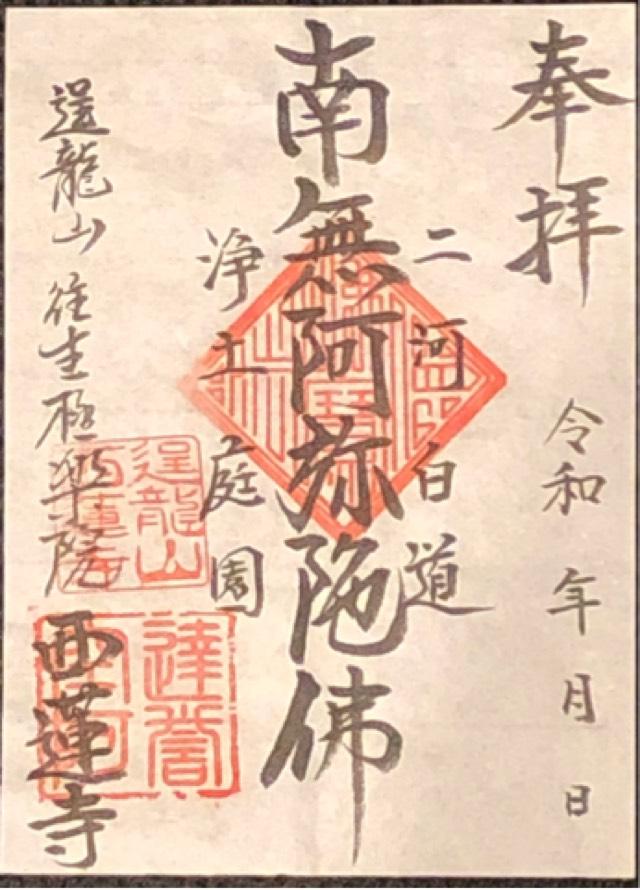 奉拝
令和 年 月 日
二河白道
南無阿弥陀佛
浄土庭園
送龍山 往生極楽院
西蓮寺